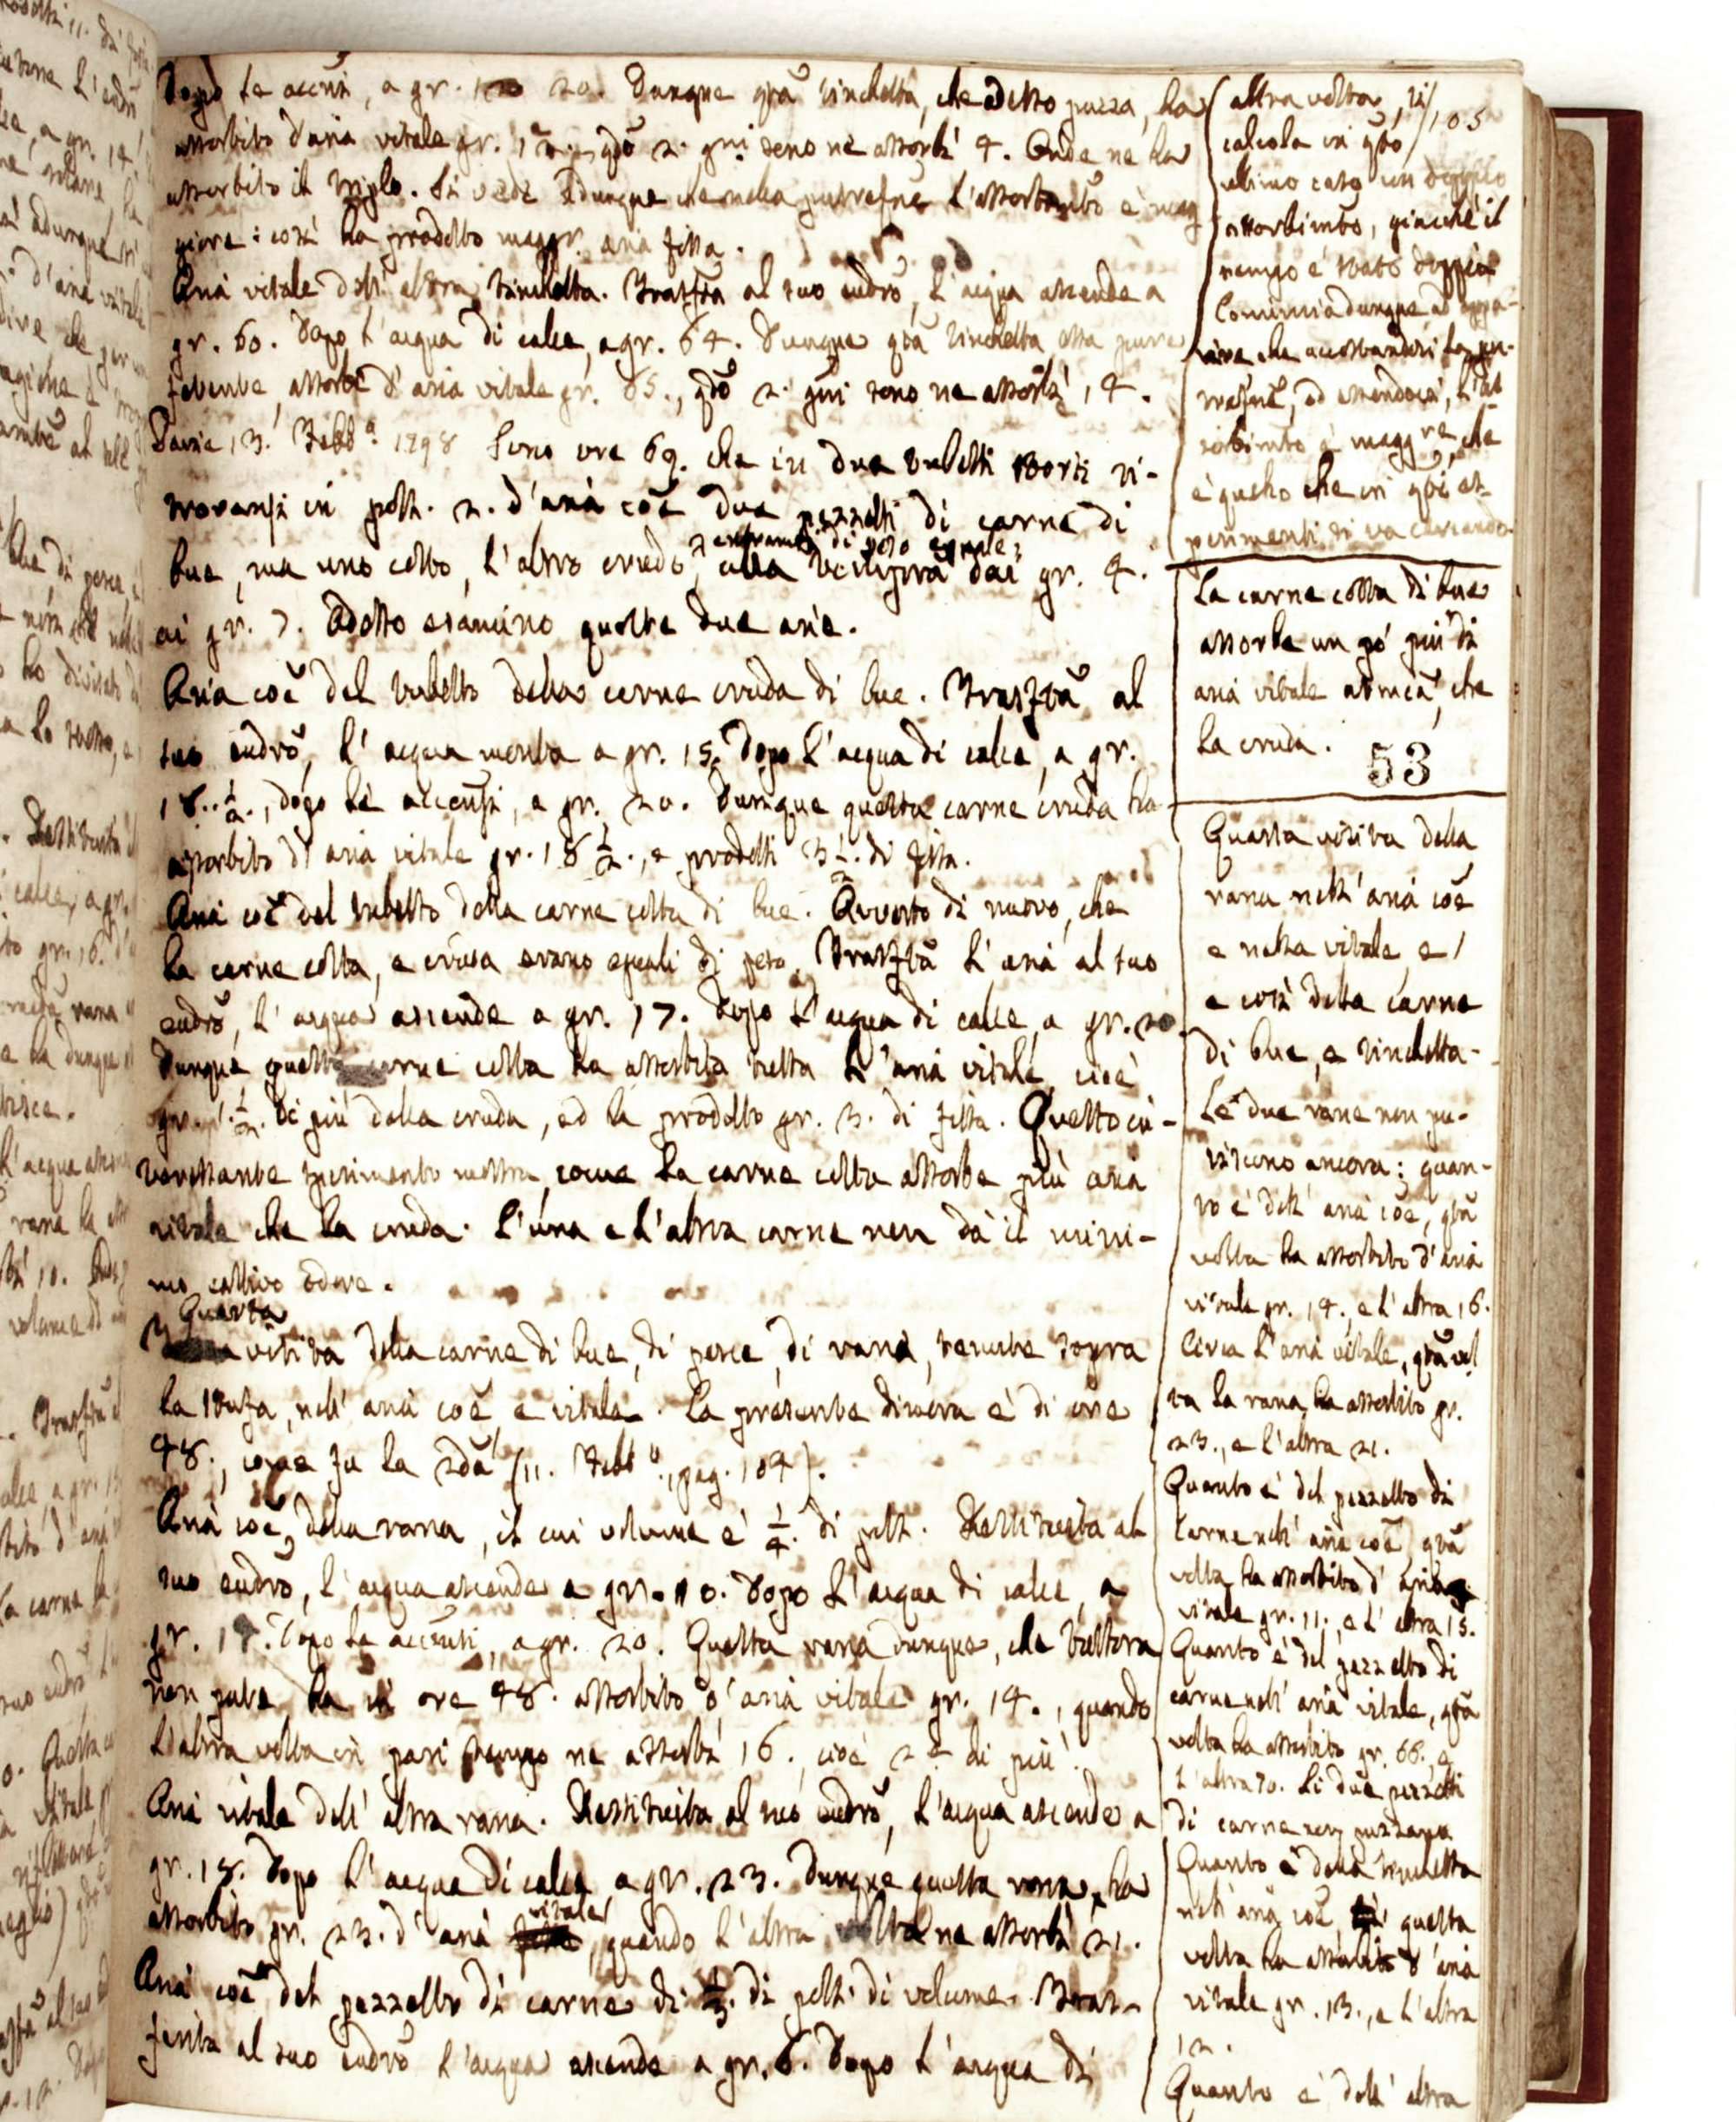 Dopo le accens, a gr. 20. Dunque qta tinchetta, che adesso puzza, ha
assorbito d'aria vitale gr. 12. qdo 2. gni sono ne assorbì 4. Onde ne ha
assorbito il triplo. Si vede adunque che nella putrefne l'assorbimto è mag
giore: così ha prodotto maggr. aria fissa.
Aria vitale dell' altra tinchetta. Trasfta al suo eudro, l'acqua ascende a
gr. 60. Dopo l'acqua di calce, a gr. 64. Dunque qta tinchetta, essa pure
fetente, assorbì d'aria vitale gr. 65., qdo 2. gni sono ne assorbì 14.
Pavia 13. Febbo. 1798 Sono ore 69. che in due tubetti storti ri-
trovansi in poll. 2. d'aria coe due pezzetti di carne di
bue, ma uno cotto, l'altro crudo, entrambi di peso eguale,
alla tempra dai gr. 4.
ai gr. 7. Adesso esamino queste due arie.
Aria coe del tubetto della carne cruda di bue. Trasfta al
suo eudro, l'acqua monta a gr. 15. Dopo l'acqua di calce, a gr.
18. 1/2., dopo le accensi, a gr. 20. Dunque questa carne cruda ha
assorbito di aria vitale gr. 18 1/2., e prodotti 3 1/2. di fissa.
Aria coe del tubetto della carne cotta di bue. Avverto di nuovo, che
la carne cotta, e cruda erano eguali di peso. Trasfta l'aria al suo
eudro, l'acqua ascende a gr. 17. Dopo l'acqua di calce, a gr. 20
Dunque questa carne cotta ha assorbita tutta l'aria vitale, cioè
gr. 1. 1/2. di più della cruda, ed ha prodotto gr. 3. di fissa. Questo in-
teressante sperimento mostra, come la carne cotta assorbe più aria
vitale che la cruda. L'una e l'altra carne non dà il mini-
mo cattivo odore.
Quarta
visita della carne di bue, di pesce, di rana, tenute sopra
la stufa, nell' aria coe e vitale. La presente dimora è di ore
48., come fu la 2da (11. Febbo., pag. 104).
Aria coe della rana, il cui volume è 1/4. di poll. Restituita al
suo eudro, l'acqua ascende a gr. 10. Dopo l'acqua di calce, a
gr. 14. Dopo le accensi, a gr. 20. Questa rana dunque, che tuttora
non pute, ha in ore 48. assorbito d'aria vitale gr. 14., quando
l'altra volta in pari tempo ne assorbì 16., cioè 2 di più.
Aria vitale dell' altra rana. Restituita al suo eudro, l'acqua ascende a
gr. 18. Dopo l'acqua di calce, a gr. 23. Dunque questa rana ha
assorbito gr. 23. d'aria vitale, quando l'altra volta ne assorbì 21.
Aria coe del pezzetto di carne di 1/3. di poll. di volume. Tras-
ferita al suo eudro l'acqua ascende a gr. 6. Dopo l'acqua di
altra volta, si
105
calcola in qto
ultimo caso un doppio
assorbimto, giacchè il
tempo è stato doppio
Comincia dunque ad appa-
rire che accostandosi la pu-
trefne, od essendoci, l'as
sorbimto è maggre, che
è quello che in qti es-
perimenti si va cercando.
La carne cotta di bue
assorbe un pò più di
aria vitale atmica, che
la cruda.
53
Quarta visita della
rana nell' aria coe
e nella vitale, e
e così della carne
di bue, e tinchetta-
Le due rane non pu-
tiscono ancora: quan-
to è dell' aria coe, qta
volta ha assorbito d'aria
vitale gr. 14., e l'altra 16.
Circa l'aria vitale, qta vol
ta la rana ha assorbito gr.
23., e l'altra 21.
Quanto è del pezzetto di
carne nell' aria coe, qta
volta ha assorbito d' aria
vitale gr. 11., e l' altra 15.
Quanto è del pezzetto di
carne nell' aria vitale, qta
volta ha assorbito gr. 66., e
l'altra 70. Li due pezzetti
di carne non puzzano
Quanto è della tinchetta
nell' aria coe questa
volta ha assorbito d' aria
vitale gr. 13., e l'altra
12.
Quanto è dell' altra